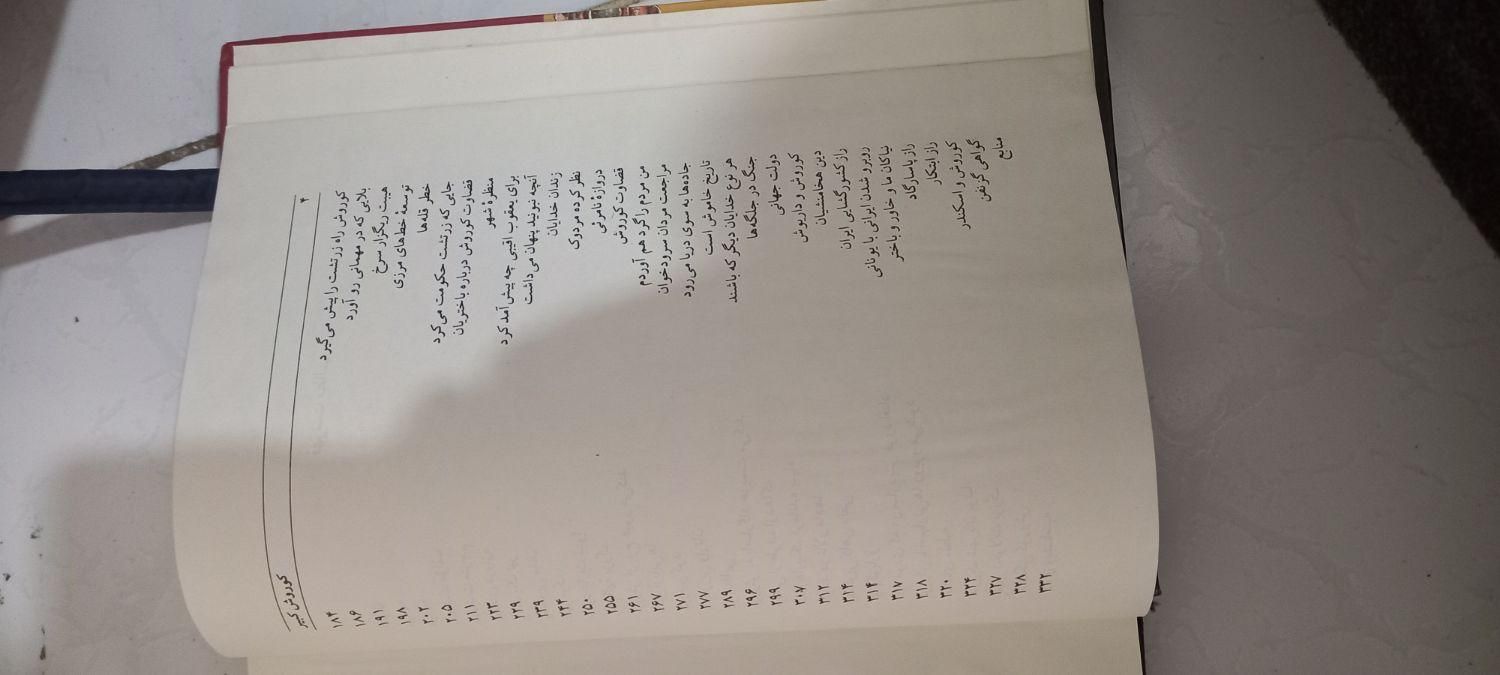 ۴ کوروش کبیر
کوروش راه زرتشت را پیش می‌گیرد ۱۸۴
بلایی که در مهمانی رو آورد ۱۸۶
هیبت ریگزار سرخ ۱۹۱
توسعهٔ خط‌های مرزی ۱۹۸
خطر قله‌ها ۲۰۲
جایی که زرتشت حکومت می‌کرد ۲۰۵
قضاوت کوروش درباره باختریان ۲۱۱
منظرهٔ شهر ۲۲۳
برای یعقوب اقیبی چه پیش آمد کرد ۲۲۹
آنچه نبونید پنهان می‌داشت ۲۳۹
زندان خدایان ۲۴۴
نظر کرده مردوک ۲۵۰
دروازهٔ نامرئی ۲۵۵
قضاوت کوروش ۲۶۱
من مردم را گرد هم آوردم ۲۶۷
مراجعت مردان سرودخوان ۲۷۱
جاده‌ها به سوی دریا می‌رود ۲۷۷
تاریخ خاموش است ۲۸۹
هر نوع خدایان دیگر که باشند ۲۹۶
جنگ در جلگه‌ها ۲۹۹
دولت جهانی ۳۰۷
کوروش و داریوش ۳۱۲
دین هخامنشیان ۳۱۴
راز کشورگشایی ایران ۳۱۴
روبرو شدن ایرانی با یونانی ۳۱۷
نیاکان ما و خاور و باختر ۳۱۸
راز پاسارگاد ۳۲۰
راز ابتکار ۳۲۴
کوروش و اسکندر ۳۲۷
گواهی گزنفن ۳۲۸
منابع ۳۳۲